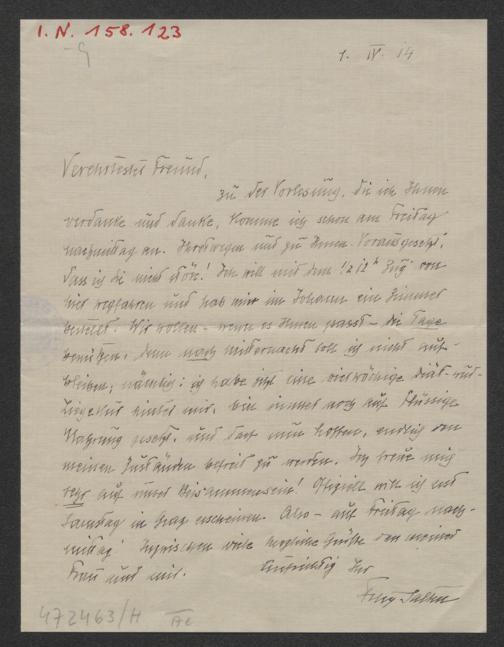 I. N. 158.123
1. IV. 14
Verehrtester Freund,
zu der Vorlesung, die ich Ihnen
verdanke und danke, komme ich schon am Freitag
nachmittag an. Ihretwegen und zu Ihnen. Vorausgesetzt,
dass ich Sie nicht störe! Ich will mit dem 1/2 12h Zug von
hier wegfahren und hab mir im Johann ein Zimmer
bestellt. Wir wollen – wenn es Ihnen passt – die Tage
benützen, denn nach Mitternacht soll ich nicht auf-
bleiben; nämlich: ich habe jetzt eine vierwöchige Diät- und
Liegekur hinter mir, bin immer noch auf flüssige
Nahrung gesetzt, und darf nun hoffen, endlich von
meinen Zuständen befreit zu werden. Ich freue mich
sehr auf unser Beisammensein! Offiziell will ich erst
Samstag in Graz erscheinen. Also – auf Freitag nach-
mittag! Inzwischen viele herzliche Grüße von meiner
Frau und mir. Aufrichtig Ihr
Felix Salten
472463/H